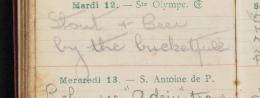 Mardi 12. — Ste Olympe.
Stout + Beer
by the bucketfull
Mercredi 13. — S. Antoine de P.